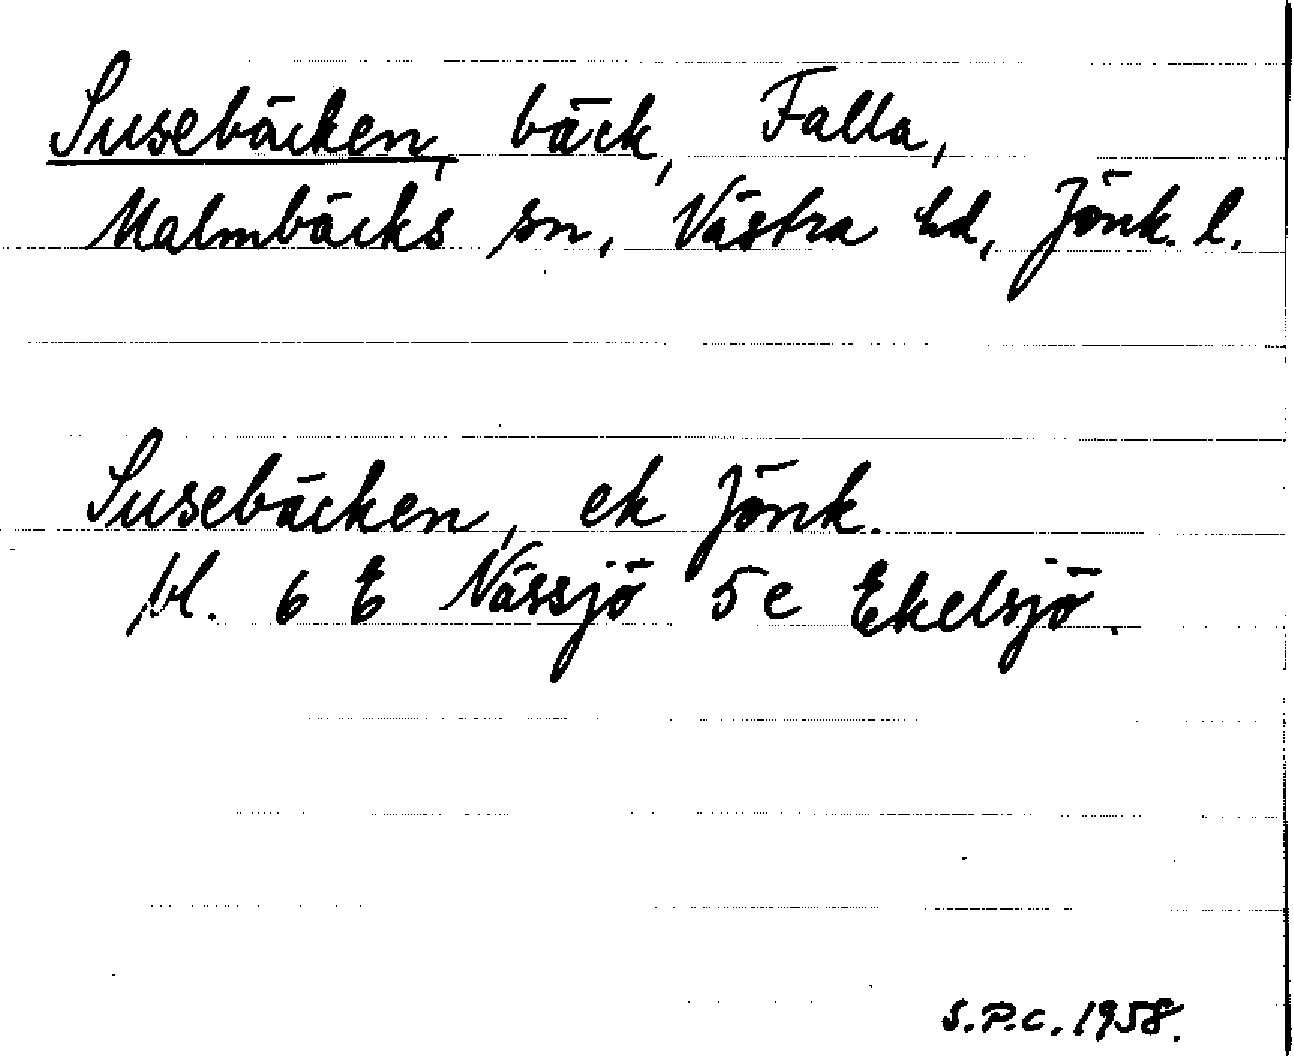 Susebäcken, bäck, Falla,
Malmbäcks sn, Västra hd, Jönk. l.
Susebäcken, ek Jönk.
bl. 6 E Nässjö 5e Ekelsjö.
S.P.C. 1958.